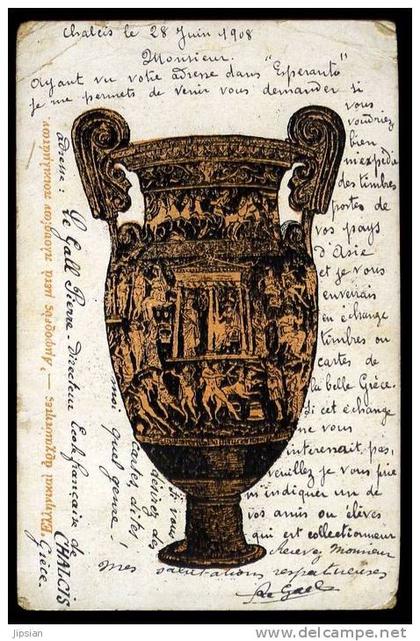 Chalcis le 28 Juin 1908
Monsieur.
Ayant vu votre adresse dans "Esperanto"
je me permets de venir vous demander si
vous
voudriez
bien
m'expédier
des timbres
postes de
vos pays
d'Asie
et je vous
enverrais
en échange
timbres ou
cartes de
la belle Grèce.
Si cet échange
ne vous
intéressait pas,
veuillez je vous prie
m'indiquer un de
vos amis ou élèves
qui est collectionneur
Recevez Monsieur
mes salutations respectueuses
Le Gall
Si vous
désirez des
cartes, dites
moi quel genre!
adresse: Le Gall Pierre. Directeur Ecole française de
CHALCIS
Grèce.
Ἑλληνικαὶ ἀρχαιότητες — Ἀμφορεὺς μετὰ
Jipsian
http://www.delcampe.net